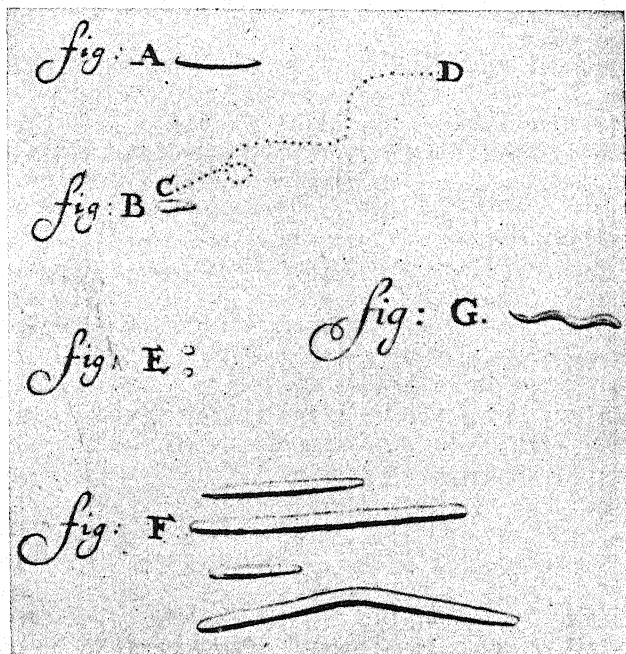 fig: A
D
C
fig: B
fig: G.
fig: E
fig: F.